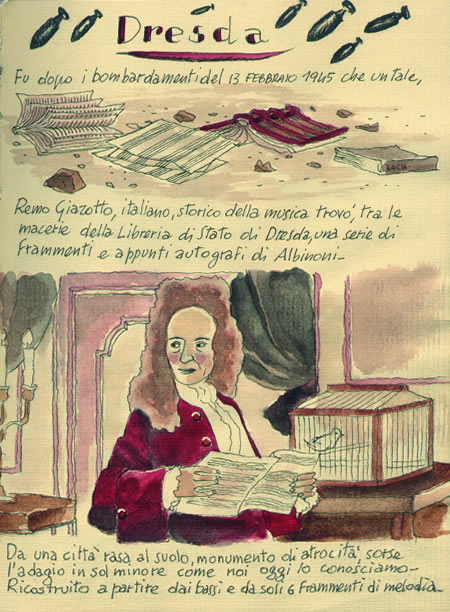 Dresda
Fu dopo i bombardamenti del 13 FEBBRAIO 1945 che un tale,
BACH
Remo Giazotto, italiano, storico della musica trovò, tra le
macerie della Libreria di Stato di Dresda, una serie di
Frammenti e appunti autografi di Albinoni_
Da una città rasa al suolo, monumento di atrocità, sorse
l'adagio in sol minore come noi oggi lo conosciamo_
Ricostruito a partire dai bassi e da soli 6 frammenti di melodia_